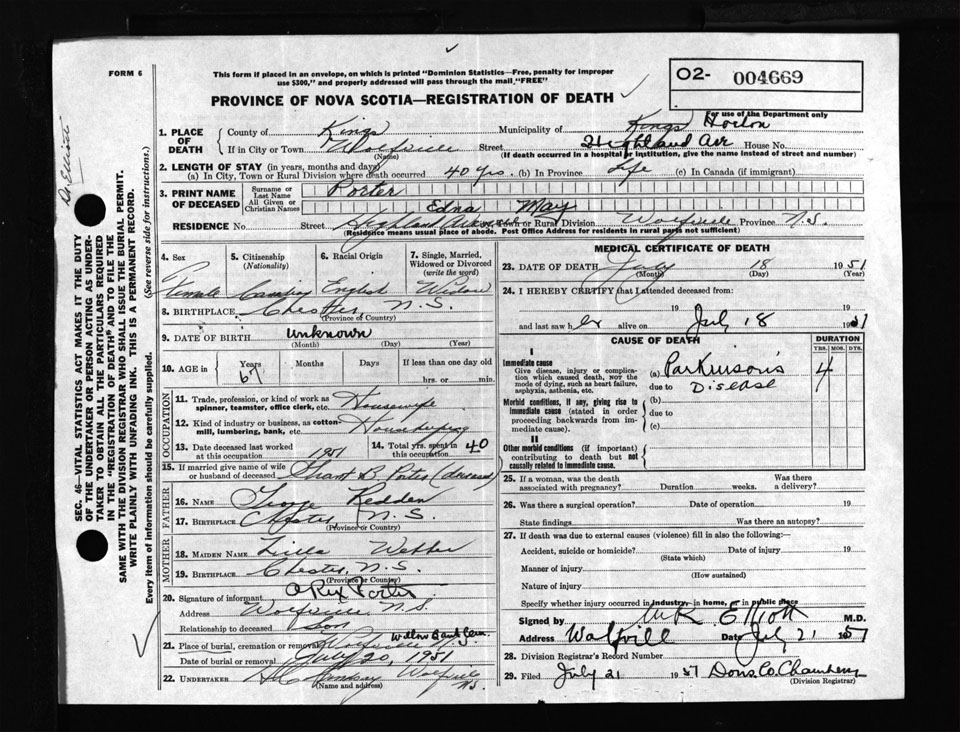 FORM 6
This form if placed in an envelope, on which is printed "Dominion Statistics—Free, penalty for improper
use $300," and properly addressed will pass through the mail "FREE"
O2- 004669
For use of the Department only
PROVINCE OF NOVA SCOTIA—REGISTRATION OF DEATH
Dr. Elliott
SEC. 46—VITAL STATISTICS ACT MAKES IT THE DUTY
OF THE UNDERTAKER OR PERSON ACTING AS UNDER-
TAKER TO OBTAIN ALL THE PARTICULARS REQUIRED
IN THE "REGISTRATION OF DEATH" AND TO FILE THE
SAME WITH THE DIVISION REGISTRAR WHO SHALL ISSUE THE BURIAL PERMIT.
WRITE PLAINLY WITH UNFADING INK. THIS IS A PERMANENT RECORD.
Every item of information should be carefully supplied. (See reverse side for instructions.)
1. PLACE OF DEATH County of Kings Municipality of Kings Horton
If in City or Town Wolfville (Name) Street Highland Ave House No.
(If death occurred in a hospital or institution, give the name instead of street and number)
2. LENGTH OF STAY (in years, months and days)
(a) In City, Town or Rural Division where death occurred 40 yrs. (b) In Province Life (c) In Canada (if immigrant)
3. PRINT NAME OF DECEASED Surname or Last Name Porter
All Given or Christian Names Edna May
RESIDENCE No. Street Highland Town or Rural Division Wolfville Province N.S.
(Residence means usual place of abode. Post Office Address for residents in rural parts not sufficient)
4. Sex 5. Citizenship (Nationality) 6. Racial Origin 7. Single, Married, Widowed or Divorced (write the word)
Female English Widow
8. BIRTHPLACE Chester N.S.
(Province or Country)
9. DATE OF BIRTH unknown
(Month) (Day) (Year)
10. AGE in Years Months Days If less than one day old
67 hrs. or min.
OCCUPATION
11. Trade, profession, or kind of work as spinner, teamster, office clerk, etc. Housewife
12. Kind of industry or business, as cotton-mill, lumbering, bank, etc. Housekeeping
13. Date deceased last worked at this occupation 1951 14. Total yrs. spent in this occupation 40
15. If married give name of wife or husband of deceased B. Porter (deceased)
FATHER
16. NAME George Redden
17. BIRTHPLACE Chester N.S.
(Province or Country)
MOTHER
18. MAIDEN NAME Webber
19. BIRTHPLACE Chester, N.S.
(Province or Country)
20. Signature of informant Rex Porter
Address Wolfville N.S.
Relationship to deceased Son
21. Place of burial, cremation or removal Wolfville Willow Bank Cem.
Date of burial or removal July 20, 1951
22. UNDERTAKER Wolfville N.S.
(Name and address)
MEDICAL CERTIFICATE OF DEATH
23. DATE OF DEATH July 18 1951
(Month) (Day) (Year)
24. I HEREBY CERTIFY that I attended deceased from:
19 19
and last saw her alive on July 18 1951
CAUSE OF DEATH DURATION
YRS. MOS. DYS.
I
Immediate cause
Give disease, injury or complication which caused death, not the mode of dying, such as heart failure, asphyxia, asthenia, etc.
(a) Parkinson's 4
due to Disease
Morbid conditions, if any, giving rise to immediate cause (stated in order proceeding backwards from immediate cause).
(b)
due to
(c)
II
Other morbid conditions (if important) contributing to death but not causally related to immediate cause.
25. If a woman, was the death associated with pregnancy? Duration weeks. Was there a delivery?
26. Was there a surgical operation? Date of operation 19
State findings Was there an autopsy?
27. If death was due to external causes (violence) fill in also the following:—
Accident, suicide or homicide? Date of injury 19
(State which)
Manner of injury
(How sustained)
Nature of injury
Specify whether injury occurred in industry, in home, or in public place
Signed by Elliott M.D.
Address Wolfville Date July 21 1951
28. Division Registrar's Record Number
29. Filed July 21 1951
(Division Registrar)